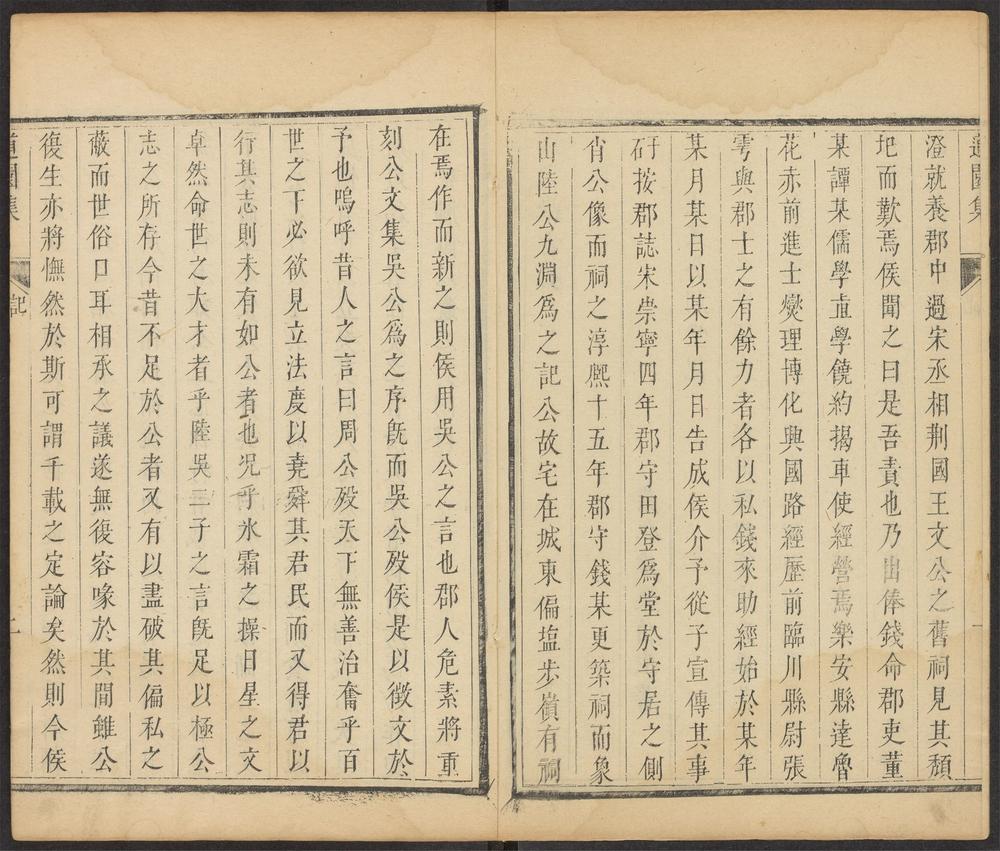 道園集
澄就養郡中過宋丞相荆國王文公之舊祠見其頹
圯而歎焉侯聞之曰是吾責也乃出俸錢命郡吏董
某譚某儒學直學饒約揭車使經營焉樂安縣達魯
花赤前進士燮理博化興國路經歷前臨川縣尉張
雩與郡士之有餘力者各以私錢來助經始於某年
某月某日以某年月日告成侯介予從子宣傳其事
矸按郡誌宋崇寧四年郡守田登爲堂於守居之側
肖公像而祠之淳熈十五年郡守錢某更築祠而象
山陸公九淵爲之記公故宅在城東偏塩步嶺有祠
在焉作而新之則侯用吳公之言也郡人危素將重
刻公文集吳公爲之序旣而吳公殁侯是以徵文於
予也嗚呼昔人之言曰周公殁天下無善治奮乎百
世之下必欲見立法度以堯舜其君民而又得君以
行其志則未有如公者也况乎氷霜之操日星之文
卓然命世之大才者乎陸吳二子之言旣足以極公
志之所存今昔不足於公者又有以盡破其偏私之
蔽而世俗口耳相承之議遂無復容喙於其間雖公
復生亦將憮然於斯可謂千載之定論矣然則今侯
道園集
記
二